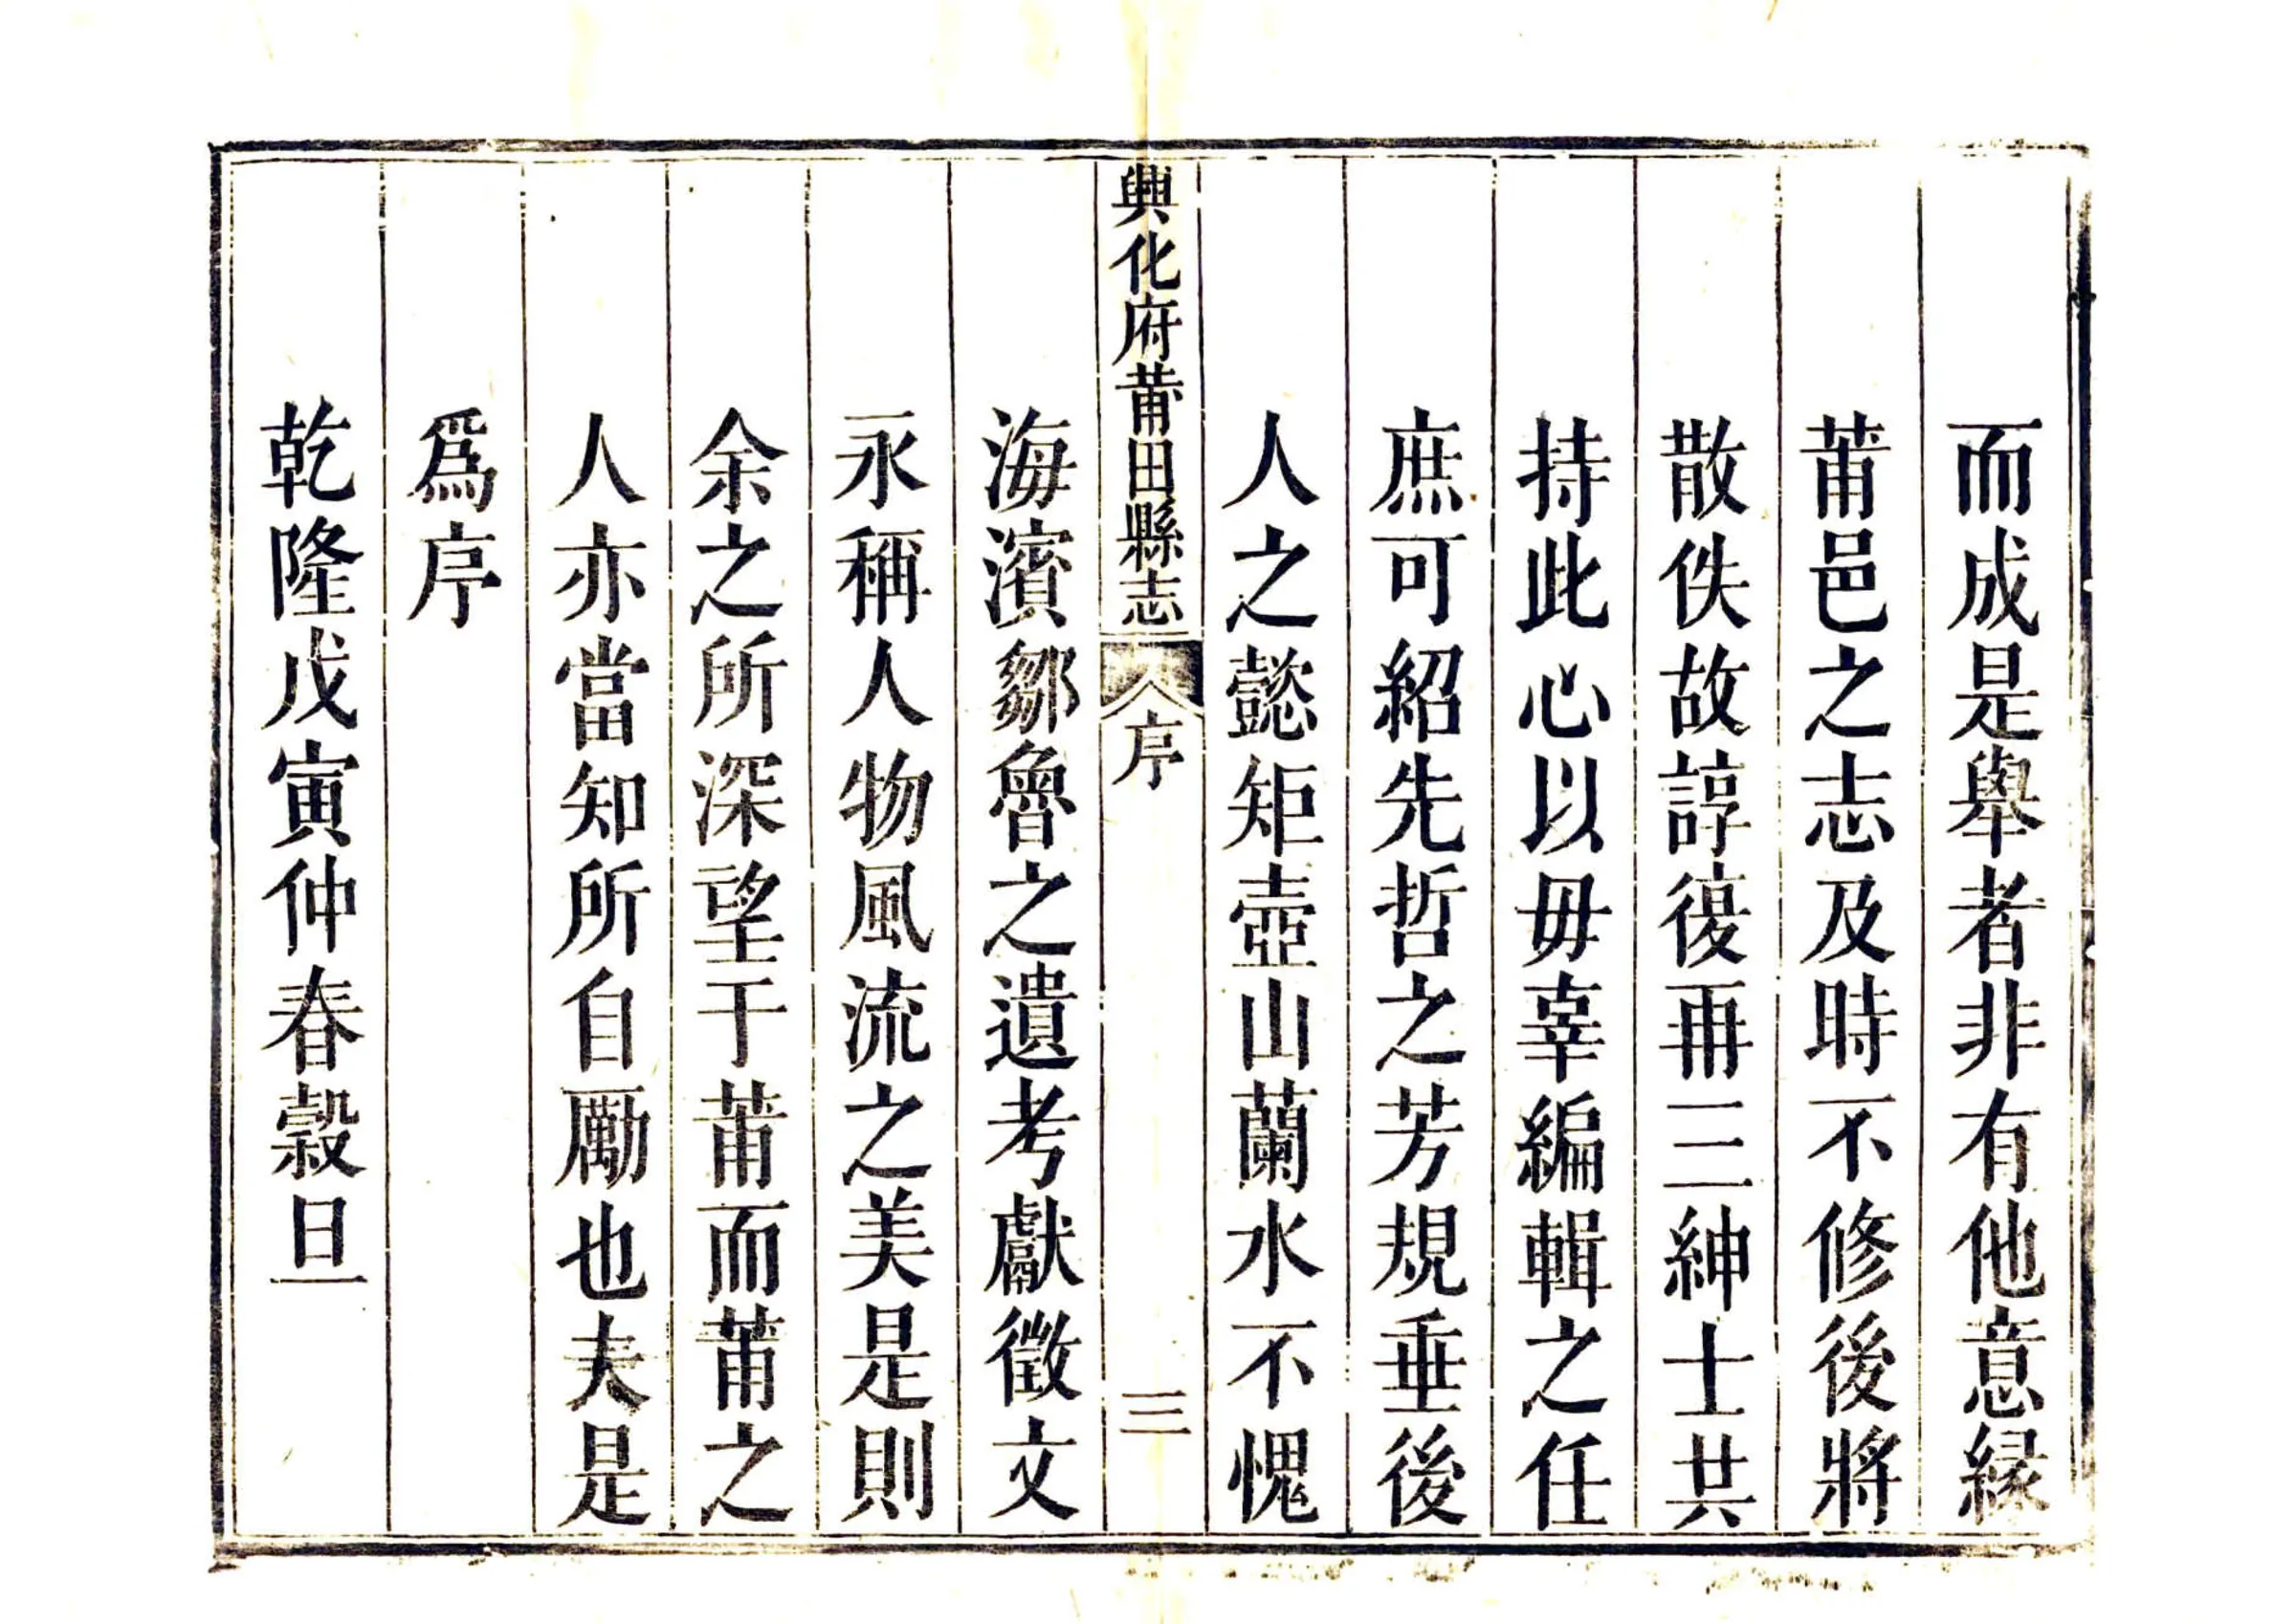 而成是舉者非有他意緣
莆邑之志及時不修後將
散佚故諄復再三紳士共
持此心以毋辜編輯之任
庶可紹先哲之芳規垂後
人之懿矩壺山蘭水不愧
興化府莆田縣志
序
三
海濱鄒魯之遺考獻徵文
永稱人物風流之美是則
余之所深望于莆而莆之
人亦當知所自勵也夫是
爲序
乾隆戊寅仲春穀旦